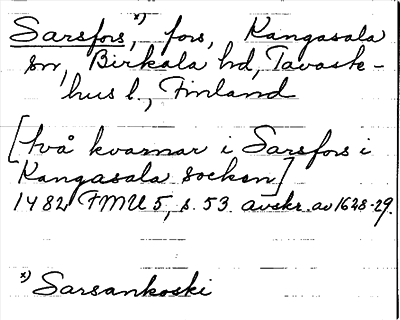 Sarsfors,ˣ⁾ fors, Kangasala
sn, Birkala hd, Tavaste-
hus l., Finland
[två kvarnar i Sarsfors i
Kangasala socken]
1482 FMU 5, s. 53 avskr. av 1628-29.
ˣ⁾ Sarsankoski